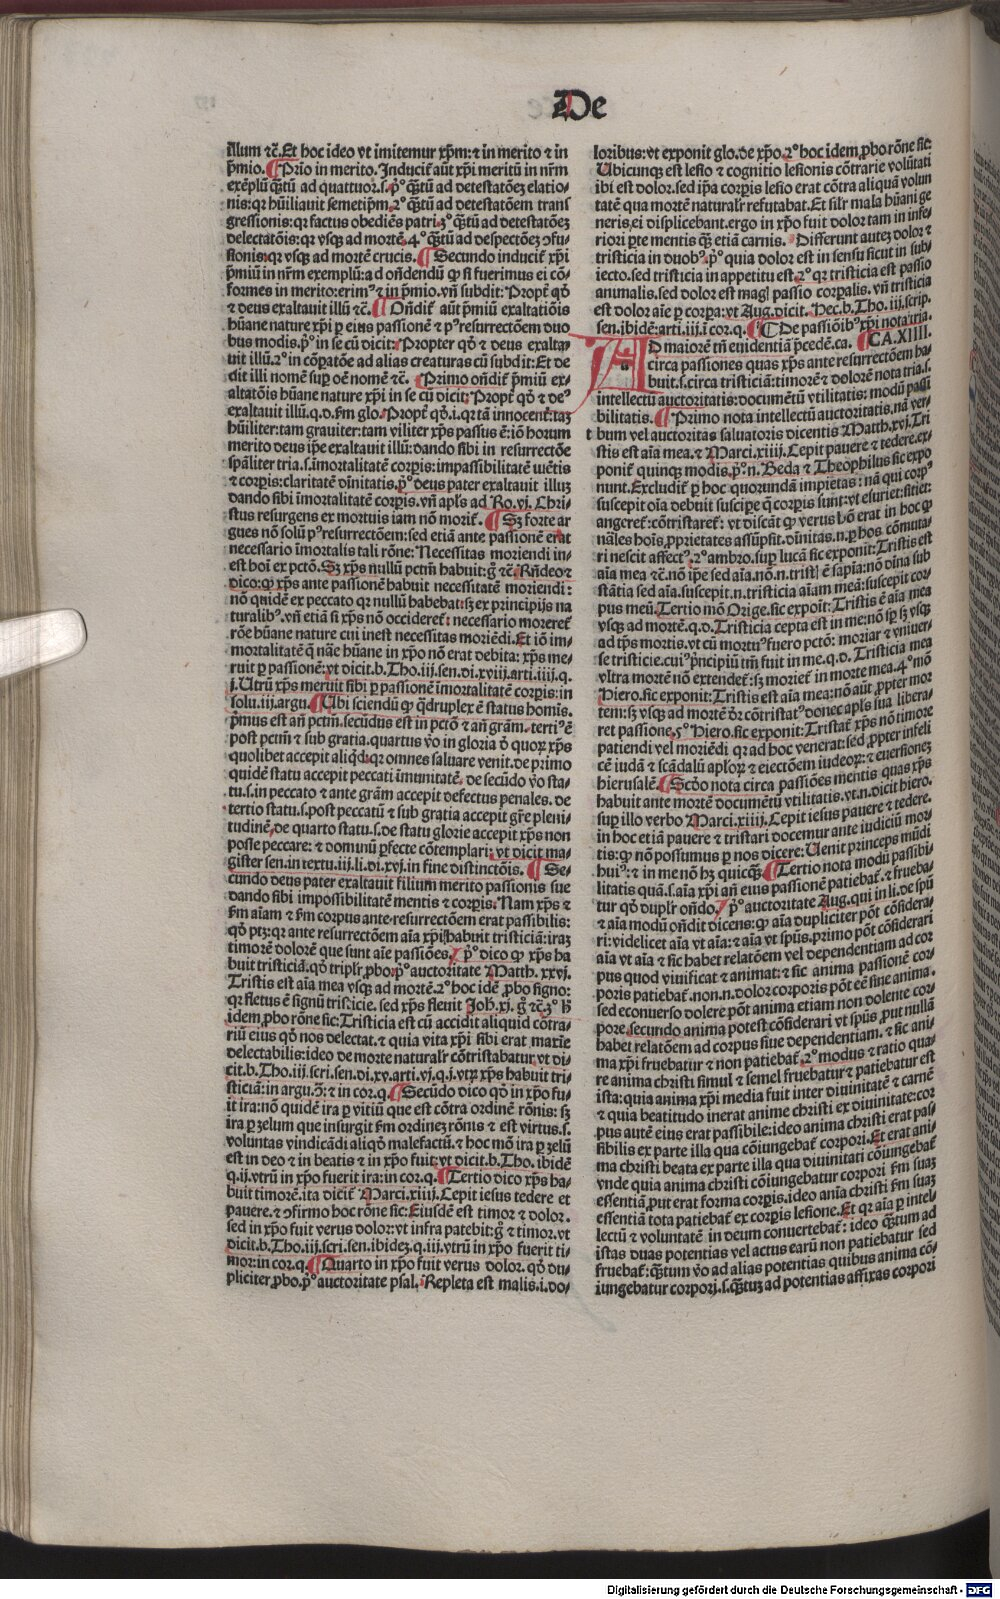 De
Alum ⁊c̃. Et hoc ideo vt imitemur xp̃m: ⁊ in merito ⁊ in
p̃mio. ¶ Prio in merito. Inducit̃ aũt xp̃i meritũ in nr̃m
exẽplũ q̃tũ ad quattuor. s. p̾ q̃tũ ad detestatõez elatio-
nis: qr hũiliauit semetip̃m. 2º q̃tũ ad detestatõem trans
gressionis: qr factus obediẽs patri. 3º q̃tũ ad detestatõez
delectatõis: qr vsq; ad mortẽ. 4º q̃tũ ad despectõez ꝯfu-
sionis: qr vsq; ad mortẽ crucis. ¶ Secundo inducit̃ xp̃i
p̃miũ in nr̃m exemplũ: ad oñdendũ ꝙ si fuerimus ei cõ-
formes in merito: erim⁹ ⁊ in p̃mio. vñ subdit: Propt̃ qḋ
⁊ deus exaltauit illũ ⁊c̃. ¶ Oñdit̃ aũt p̃miũ exaltatiõis
hũane nature xp̃i ꝑ eius passionẽ ⁊ p⁹ resurrectõem duo
bus modis. p̾ in se cũ dicit: Propter qḋ ⁊ deus exalta-
uit illũ. 2º in cõpatõe ad alias creaturas cũ subdit: Et de
dit illi nomẽ suꝑ oẽ nomẽ ⁊c̃. Primo oñdit̃ p̃miũ ex-
altatõis hũane nature xp̃i in se cũ dicit: Propt̃ qḋ ⁊ de⁹
exaltauit illũ. q. d. ẜm glo. Propt̃ qḋ. i. qr tã innocent̃: taz
hũiliter: tam grauiter: tam viliter xp̃s passus ẽ: iõ horum
merito deus ip̃e exaltauit illũ: dando sibi in resurrectõe
sp̃aliter tria. s. imortalitatẽ corꝑis: impassibilitatẽ mẽtis
⁊ corꝑis: claritatẽ diuinitatis. p̾ deus pater exaltauit illuz
dando sibi ĩmortalitatẽ corꝑis. vñ apl̃s ad Ro. vj. Chri-
stus resurgens ex mortuis iam nõ morit̃. ¶ Sz forte ar
gues nõ solũ p⁹ resurrectõem: sed etiã ante passionẽ erat
necessario ĩmortalis tali rõne: Necessitas moriendi in-
est hoĩ ex pctõ. Sz xp̃s nullũ pctm̃ habuit: g̃ ⁊c̃. Rñdeo ⁊
dico: ꝙ xp̃s ante passionẽ habuit necessitatẽ moriendi:
nõ quidẽ ex peccato qr nullũ habebat: sz ex principijs na
turalib⁹. vñ etiã si xp̃s nõ occideret̃: necessario moreret̃
rõe hũane nature cui inest necessitas moriẽdi. Et iõ im-
mortalitatẽ q̃ nãe hũane in xp̃o nõ erat debita: xp̃s me-
ruit ꝑ passionẽ: vt dicit. b. Tho. iij. sen. di. xviij. arti. iiij. q.
j. Utrũ xp̃s meruit sibi ꝑ passionẽ ĩmortalitatẽ corꝑis: in
solu. iij. argu. ¶ Ubi sciendũ ꝙ q̃druplex ẽ status homis.
p̃mus est añ pctm̃. secũdus est in pctõ ⁊ añ grãm. terti⁹ ẽ
post pctm̃ ⁊ sub gratia. quartus ṽo in gloria. ð quoꝝ xp̃s
quolibet accepit aliqd: qr omnes saluare venit. de primo
quidẽ statu accepit peccati ĩmunitatẽ. de secũdo ṽo sta-
tu. s. in peccato ⁊ ante grãm accepit defectus penales. de
tertio statu. s. post peccatũ ⁊ sub gratia accepit gr̃e pleni-
tudinẽ. de quarto statu. s. de statu glorie accepit xp̃s non
posse peccare: ⁊ dominũ ꝑfecte cõtemplari: vt dicit ma-
gister sen. in textu. iij. li. di. xvj. in fine distinctõis. ¶ Se-
cundo deus pater exaltauit filium merito passionis sue
dando sibi impossibilitatẽ mentis ⁊ corꝑis. Nam xp̃s ⁊
ẜm aĩam ⁊ ẜm corpus ante resurrectõem erat passibilis:
qḋ ptz: qr ante resurrectõem aĩa xp̃i habuit tristiciã: iraz
timorẽ dolorẽ que sunt aĩe passiões. p̾ dico ꝙ xp̃s ha
buit tristiciã. qḋ triplr̃ ꝓbo. p̾ auctoritate Matth. xxvj.
Tristis est aĩa mea vsq; ad mortẽ. 2º hoc idẽ ꝓbo signo:
qr fletus ẽ signũ tristicie. sed xp̃s fleuit Joh. xj. g̃ ⁊c̃. 3º h̾
idem ꝓbo rõne sic: Tristicia est cũ accidit aliquid cõtra-
riũ eius qḋ nos delectat. ⁊ quia vita xp̃i sibi erat maxĩe
delectabilis: ideo de morte naturalr̃ cõtristabatur. vt di-
cit. b. Tho. iij. scri. sen. di. xv. arti. vj. q. j. vtꝝ xp̃s habuit tri-
sticiã: in argu. ꝯ̃: ⁊ in cor. q. ¶ Secũdo dico qḋ in xp̃o fu-
it ira: nõ quidẽ ira ꝑ vitiũ que est cõtra ordinẽ rõnis: sz
ira ꝑ zelum que insurgit ẜm ordinez rõnis ⁊ est virtus. s.
voluntas vindicãdi aliqḋ malefactũ. ⁊ hoc mõ ira ꝑ zelũ
est in deo ⁊ in beatis ⁊ in xp̃o fuit: vt dicit. b. Tho. ibidẽ
q. ij. vtrũ in xp̃o fuerit ira: in cor. q. ¶ Tertio dico xp̃s ha-
buit timorẽ. ita dicit̃ Marci. xiiij. Cepit iesus tedere et
pauere. ⁊ ꝯfirmo hoc rõne sic: Eiusdẽ est timor ⁊ dolor.
sed in xp̃o fuit verus dolor: vt infra patebit: g̃ ⁊ timor. vt
dicit. b. Tho. iij. scri. sen. ibidez. q. iij. vtrũ in xp̃o fuerit ti-
mor: in cor. q. ¶ Quarto in xp̃o fuit verus dolor. qḋ du-
pliciter ꝓbo. p̾ auctoritate psal. Repleta est malis. i. do-
loribus: vt exponit glo. de xp̃o. 2º hoc idem ꝓbo rõne sic:
Ubicunqz est lesio ⁊ cognitio lesionis cõtrarie volũtati
ibi est dolor. sed ip̃a corꝑis lesio erat cõtra aliquã volun
tatẽ qua mortẽ naturalr̃ refutabat. Et silr̃ mala hũani ge
neris. ei displicebant. ergo in xp̃o fuit dolor tam in infe-
riori ꝑte mentis q̃ etiã carnis. Differunt autez dolor ⁊
tristicia in duob⁹. p̾ quia dolor est in sensu sicut in sub
iecto. sed tristicia in appetitu est. 2º qr tristicia est passio
animalis. sed dolor est mag̃ passio corꝑalis. vñ tristicia
est dolor aĩe ꝑ corpa: vt Aug. dicit. Hec. b. Tho. iij. scrip.
sen. ibidẽ: arti. iij. ĩ cor. q. ¶ De passiõib⁹ xp̃i nota tria.
AD maiorẽ tñ euidentiã p̃cedẽ. ca. ¶ CA. XIIII.
circa passiones quas xp̃s ante resurrectõem ha-
buit. s. circa tristiciã: timorẽ ⁊ dolorẽ nota tria. s.
intellectũ auctoritatis: documẽtũ vtilitatis: modũ passi
bilitatis. ¶ Primo nota intellectũ auctoritatis. nã ver-
bum vel auctoritas saluatoris dicentis Matth. xxvj. Tri
stis est aĩa mea. ⁊ Marci. xiiij. Cepit pauere ⁊ tedere. ex-
ponit̃ quinqz modis. p̾. n. Beda ⁊ Theophilus sic expo
nunt. Excludit̃ ꝑ hoc quorundã impietas: nã qui corp⁹
suscepit oĩa debuit suscipe q̃ corꝑis sunt: vt esuriet: sitiet:
angeret̃: cõtristaret̃: vt discãt ꝙ verus hõ erat in hoc ꝙ
nãles hoĩs ꝓprietates assũpsit. diuinitas. n. ꝑ hos cõmuta-
ri nescit affect⁹. 2º ambro. suꝑ lucã sic exponit: Tristis est
aĩa mea ⁊c̃. nõ ip̃e sed aĩa. nõ. n. trist̃ ẽ sapĩa: nõ diuina sub
stãtia sed aĩa. suscepit. n. tristicia aĩam mea: suscepit cor-
pus meũ. Tertio mõ Orige. sic expoĩt: Tristis ẽ aĩa mea
vsqz ad mortẽ. q. d. Tristicia cepta est in me: nõ sꝑ sz vsqz
ad tp̃s mortis. vt cũ mortu⁹ fuero pctõ: moriar ⁊ vniuer-
se tristicie. cui⁹ p̃ncipiũ tm̃ fuit in me. q. d. Tristicia mea
vltra mortẽ nõ extendet̃: sz moriet̃ in morte mea. 4º mõ
Hiero. sic exponit: Tristis est aĩa mea: nõ aũt ꝓpter mor
tem: sz vsqz ad mortẽ dr̃ cõtristat⁹ donec apl̃s sua libera-
ret passione. 5º Hiero. sic exponit: Tristat̃ xp̃s nõ timore
patiendi vel moriẽdi qr ad hoc venerat: sed ꝓpter infeli
cẽ iudã ⁊ scãdalũ apl̃oꝝ ⁊ eiectõem iudeoꝝ: ⁊ euersionez
hierusalẽ. ¶ Scd̃o nota circa passiões mentis quas xp̃s
habuit ante mortẽ documẽtũ vtilitatis. vt. n. dicit hiero.
suꝑ illo verbo Marci. xiiij. Cepit iesus pauere ⁊ tedere.
in hoc etiã pauere ⁊ tristari docemur ante iudiciũ mor-
tis: ꝙ nõ possumus ꝑ nos dicere: Uenit princeps mũdi
hui⁹: ⁊ in me nõ hz quicq̃. ¶ Tertio nota modũ passibi-
litatis quã. s. aĩa xp̃i añ eius passionẽ patiebat̃. ⁊ frueba-
tur qḋ duplr̃ oñdo. p̾ auctoritate Aug. qui in li. de spũ
⁊ aĩa modũ oñdit dicens: ꝙ aĩa dupliciter põt cõsidera-
ri: videlicet aĩa vt aĩa: ⁊ aĩa vt spũs. primo põt cõsiderari
aĩa vt aĩa ⁊ sic habet relatõem vel dependentiam ad cor
pus quod viuificat ⁊ animat: ⁊ sic anima passionẽ cor-
poris patiebat̃. non. n. dolor corporis põt eẽ sine anima.
sed econuerso dolere põt anima etiam non dolente cor-
pore. secundo anima potest cõsiderari vt spũs ꝓut nullã
habet relatõem ad corpus siue dependentiam. ⁊ sic ani-
ma xp̃i fruebatur ⁊ non patiebat̃. 2º modus ⁊ ratio qua-
re anima christi simul ⁊ semel fruebatur ⁊ patiebatur est
ista: quia anima xp̃i media fuit inter diuinitatẽ ⁊ carnẽ
⁊ quia beatitudo inerat anime christi ex diuinitate: cor
pus autẽ eius erat passibile: ideo anima christi erat pas-
sibilis ex parte illa qua cõiungebat̃ corpori. Et erat ani-
ma christi beata ex parte illa qua diuinitati cõiungebat̃
vnde quia anima christi cõiungebatur corpori ẜm suaz
essentiã ꝓut erat forma corꝑis. ideo aĩa christi ẜm suaz
essentiã tota patiebat̃ ex corꝑis lesione. Et qr aĩa ꝑ intel-
lectũ ⁊ voluntatẽ in deum conuertebat̃: ideo q̃tum ad
istas duas potentias vel actus earũ non patiebatur sed
fruebat̃: q̃tum ṽo ad alias potentias quibus anima cõ-
iungebatur corpori. s. q̃tuz ad potentias affixas corpori
Digitalisierung gefördert durch die Deutsche Forschungsgemeinschaft - DFG